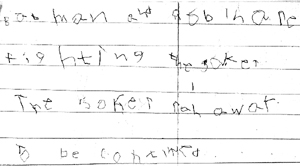 Batman and Robin are
fighting the joker.
The Joker ran away.
to be continued...